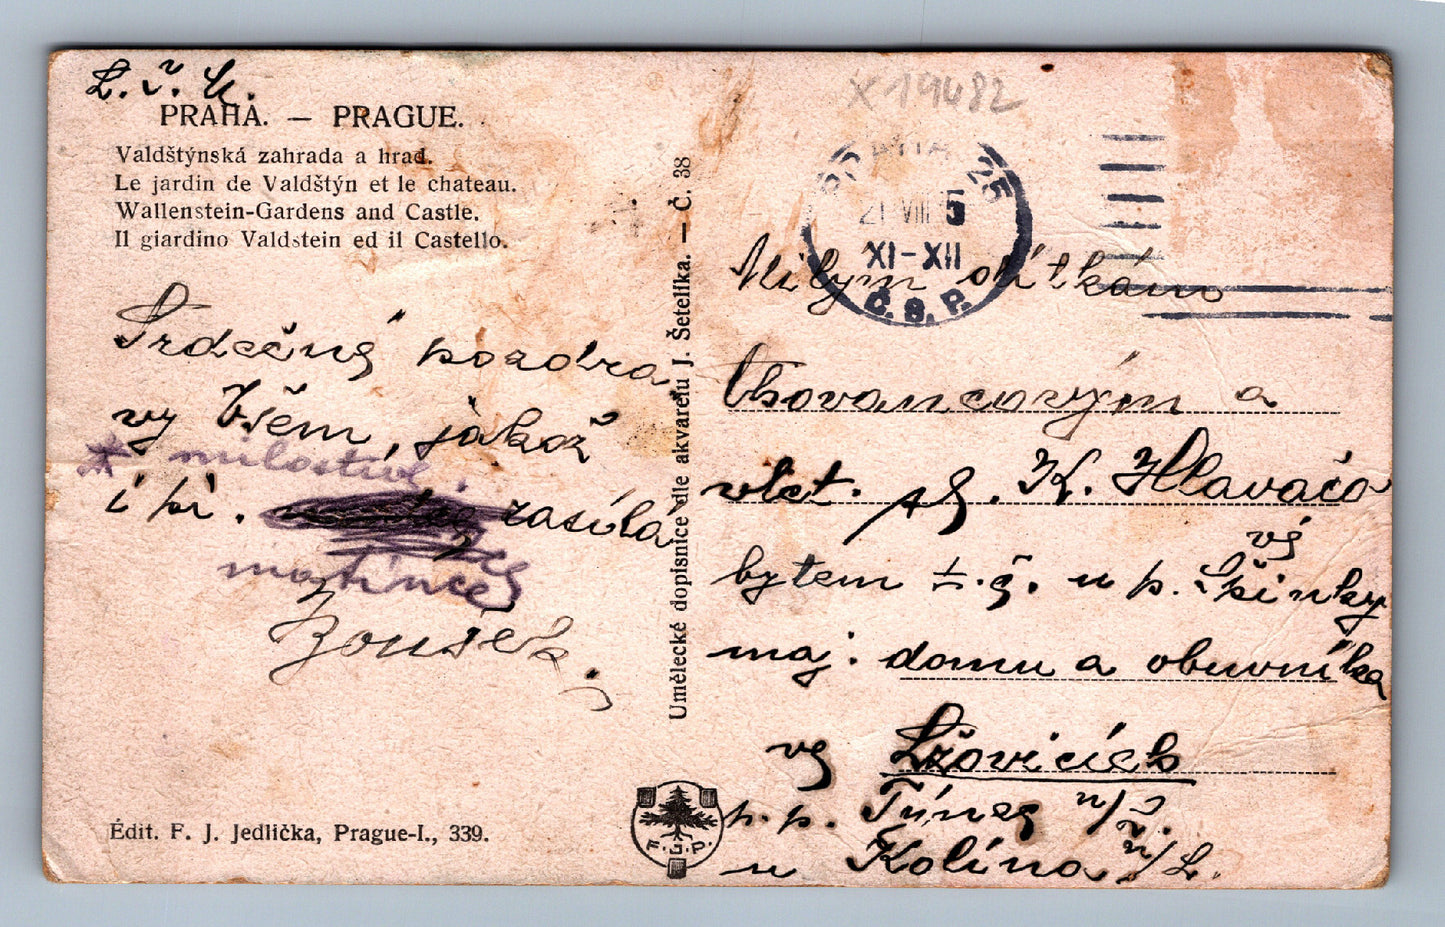 PRAHA. — PRAGUE.
Valdštýnská zahrada a hrad.
Le jardin de Valdštýn et le chateau.
Wallenstein-Gardens and Castle.
Il giardino Valdstein ed il Castello.
Srdečný pozdra
vy Všem, jakož
* milostivé
i pí. zasílá
Zoušek.
Édit. F. J. Jedlička, Prague-I., 339.
Umělecké dopisnice dle akvarelu J. Šetelíka. — Č. 38
F.J.P.
X 19482
25
21 VIII 5
XI-XII
Č. S. P.
Milým dítkám
Chovancovým a
vlct. pí. K. Hlaváčo
vé
bytem t. č. u p. Špinky
maj. domu a obuvníka
vy Lžovicích
p. p. Týnec n/L.
u Kolína n/L.